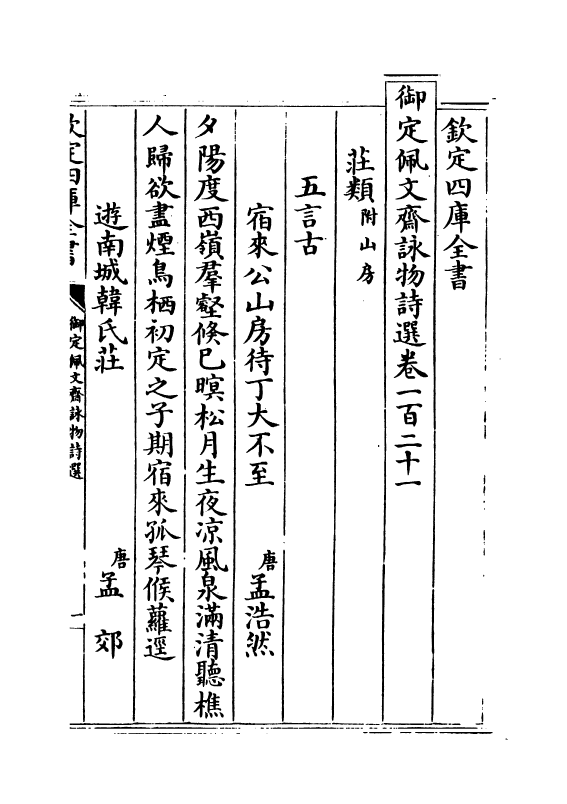 欽定四庫全書
御定佩文齋詠物詩選卷一百二十一
莊類附山房
五言古
宿來公山房待丁大不至 唐孟浩然
夕陽度西嶺羣壑倐已暝松月生夜凉風泉滿清聽樵
人歸欲盡煙鳥栖初定之子期宿來孤琴候蘿逕
遊南城韓氏莊 唐孟郊
欽定四庫全書 御定佩文齋詠物詩選 一